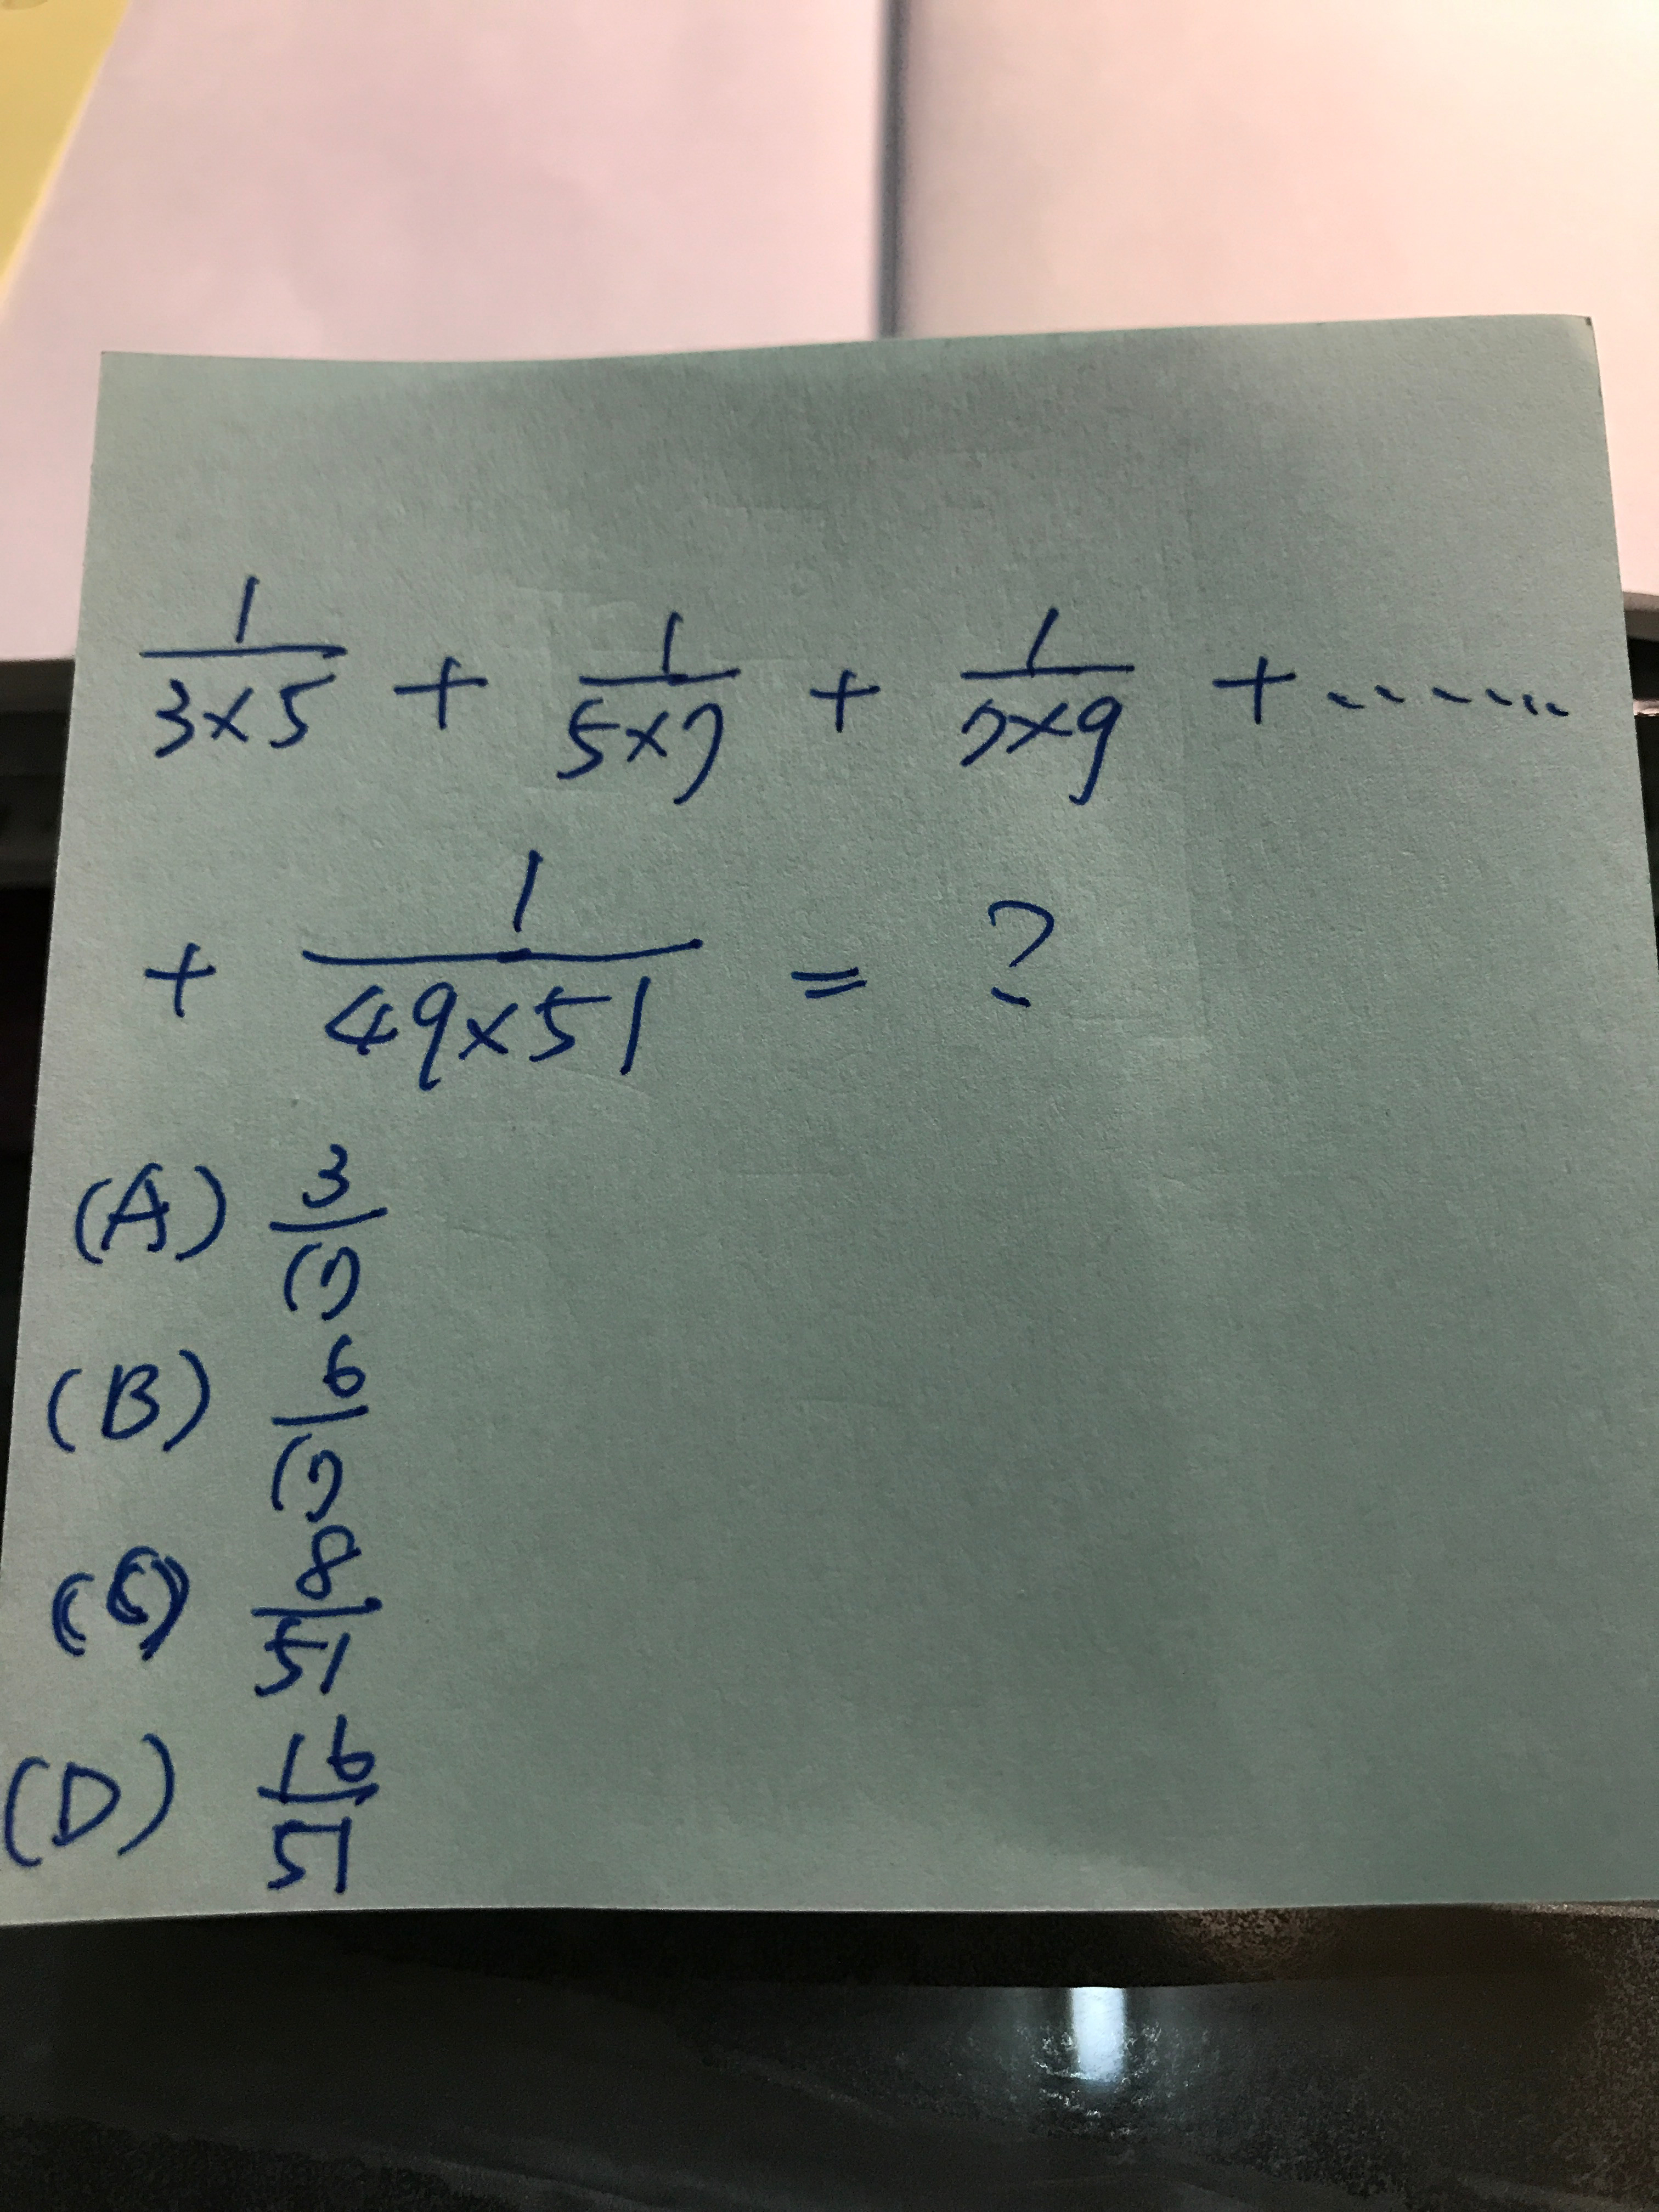 1/(3×5) + 1/(5×7) + 1/(7×9) + ......
+ 1/(49×51) = ?
(A) 3/17
(B) 6/17
(C) 8/51
(D) 16/51